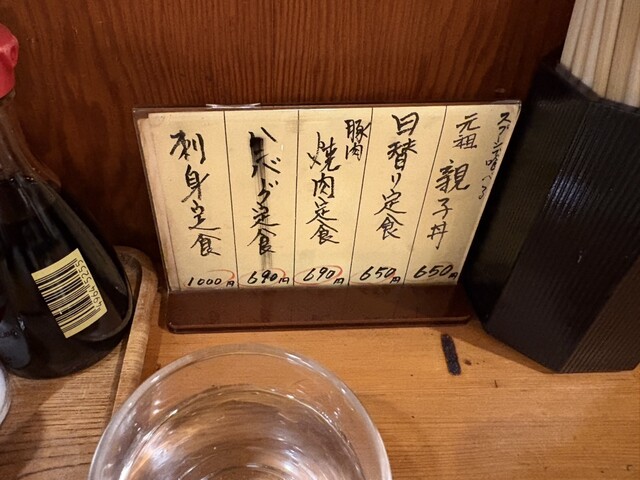 スプーンで喰べる
元祖 親子丼
650円
日替り定食
650円
豚肉
焼肉定食
690円
ハンバーグ定食
690円
刺身定食
1000円